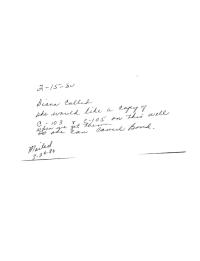 2-15-80
Diane called
she would like a copy of
C-103 & C-105 on this well
when we get them
so she can cancel Bond.
Mailed